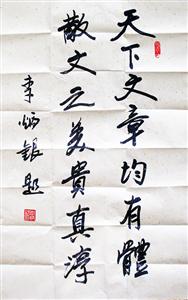 天下文章均有體
散文之美貴真淳
李炳銀題